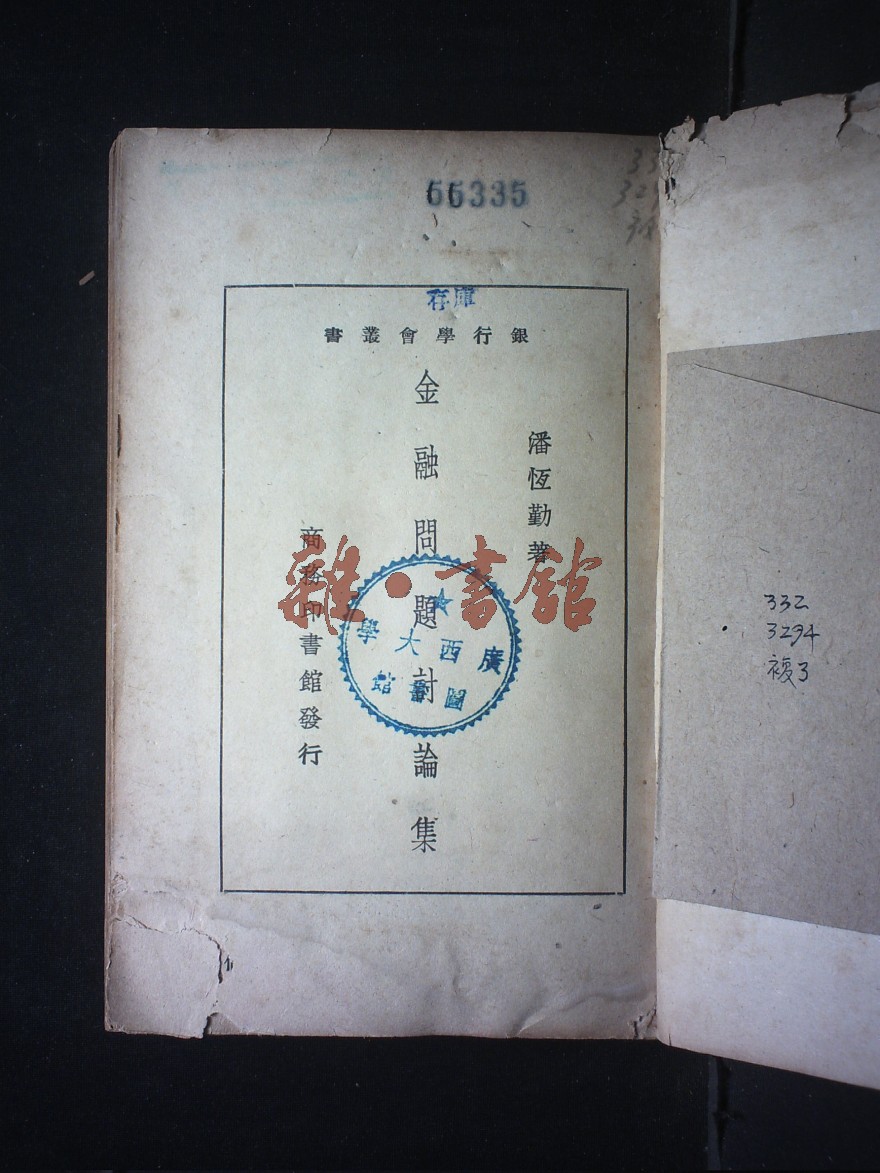 66335
存庫
銀行學會叢書
潘恆勤著
金融問題討論集
商務印書館發行
雜·書館
廣西大學
圖書館
332
3294
複3